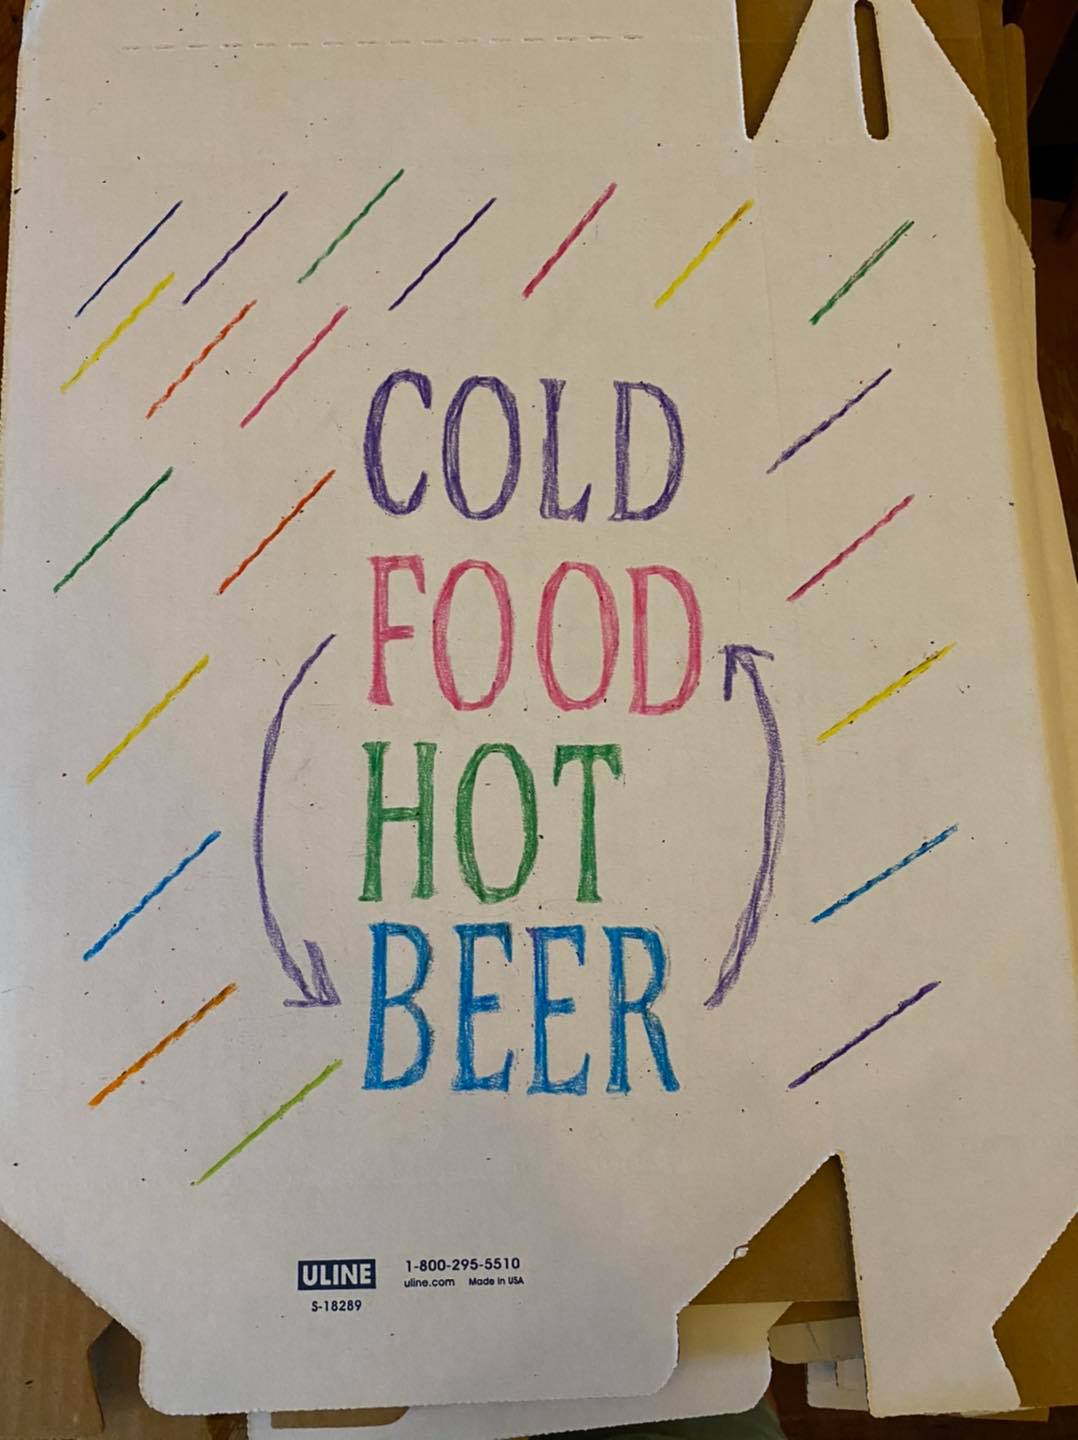 COLD
FOOD
HOT
BEER
ULINE 1-800-295-5510
uline.com Made in USA
S-18289